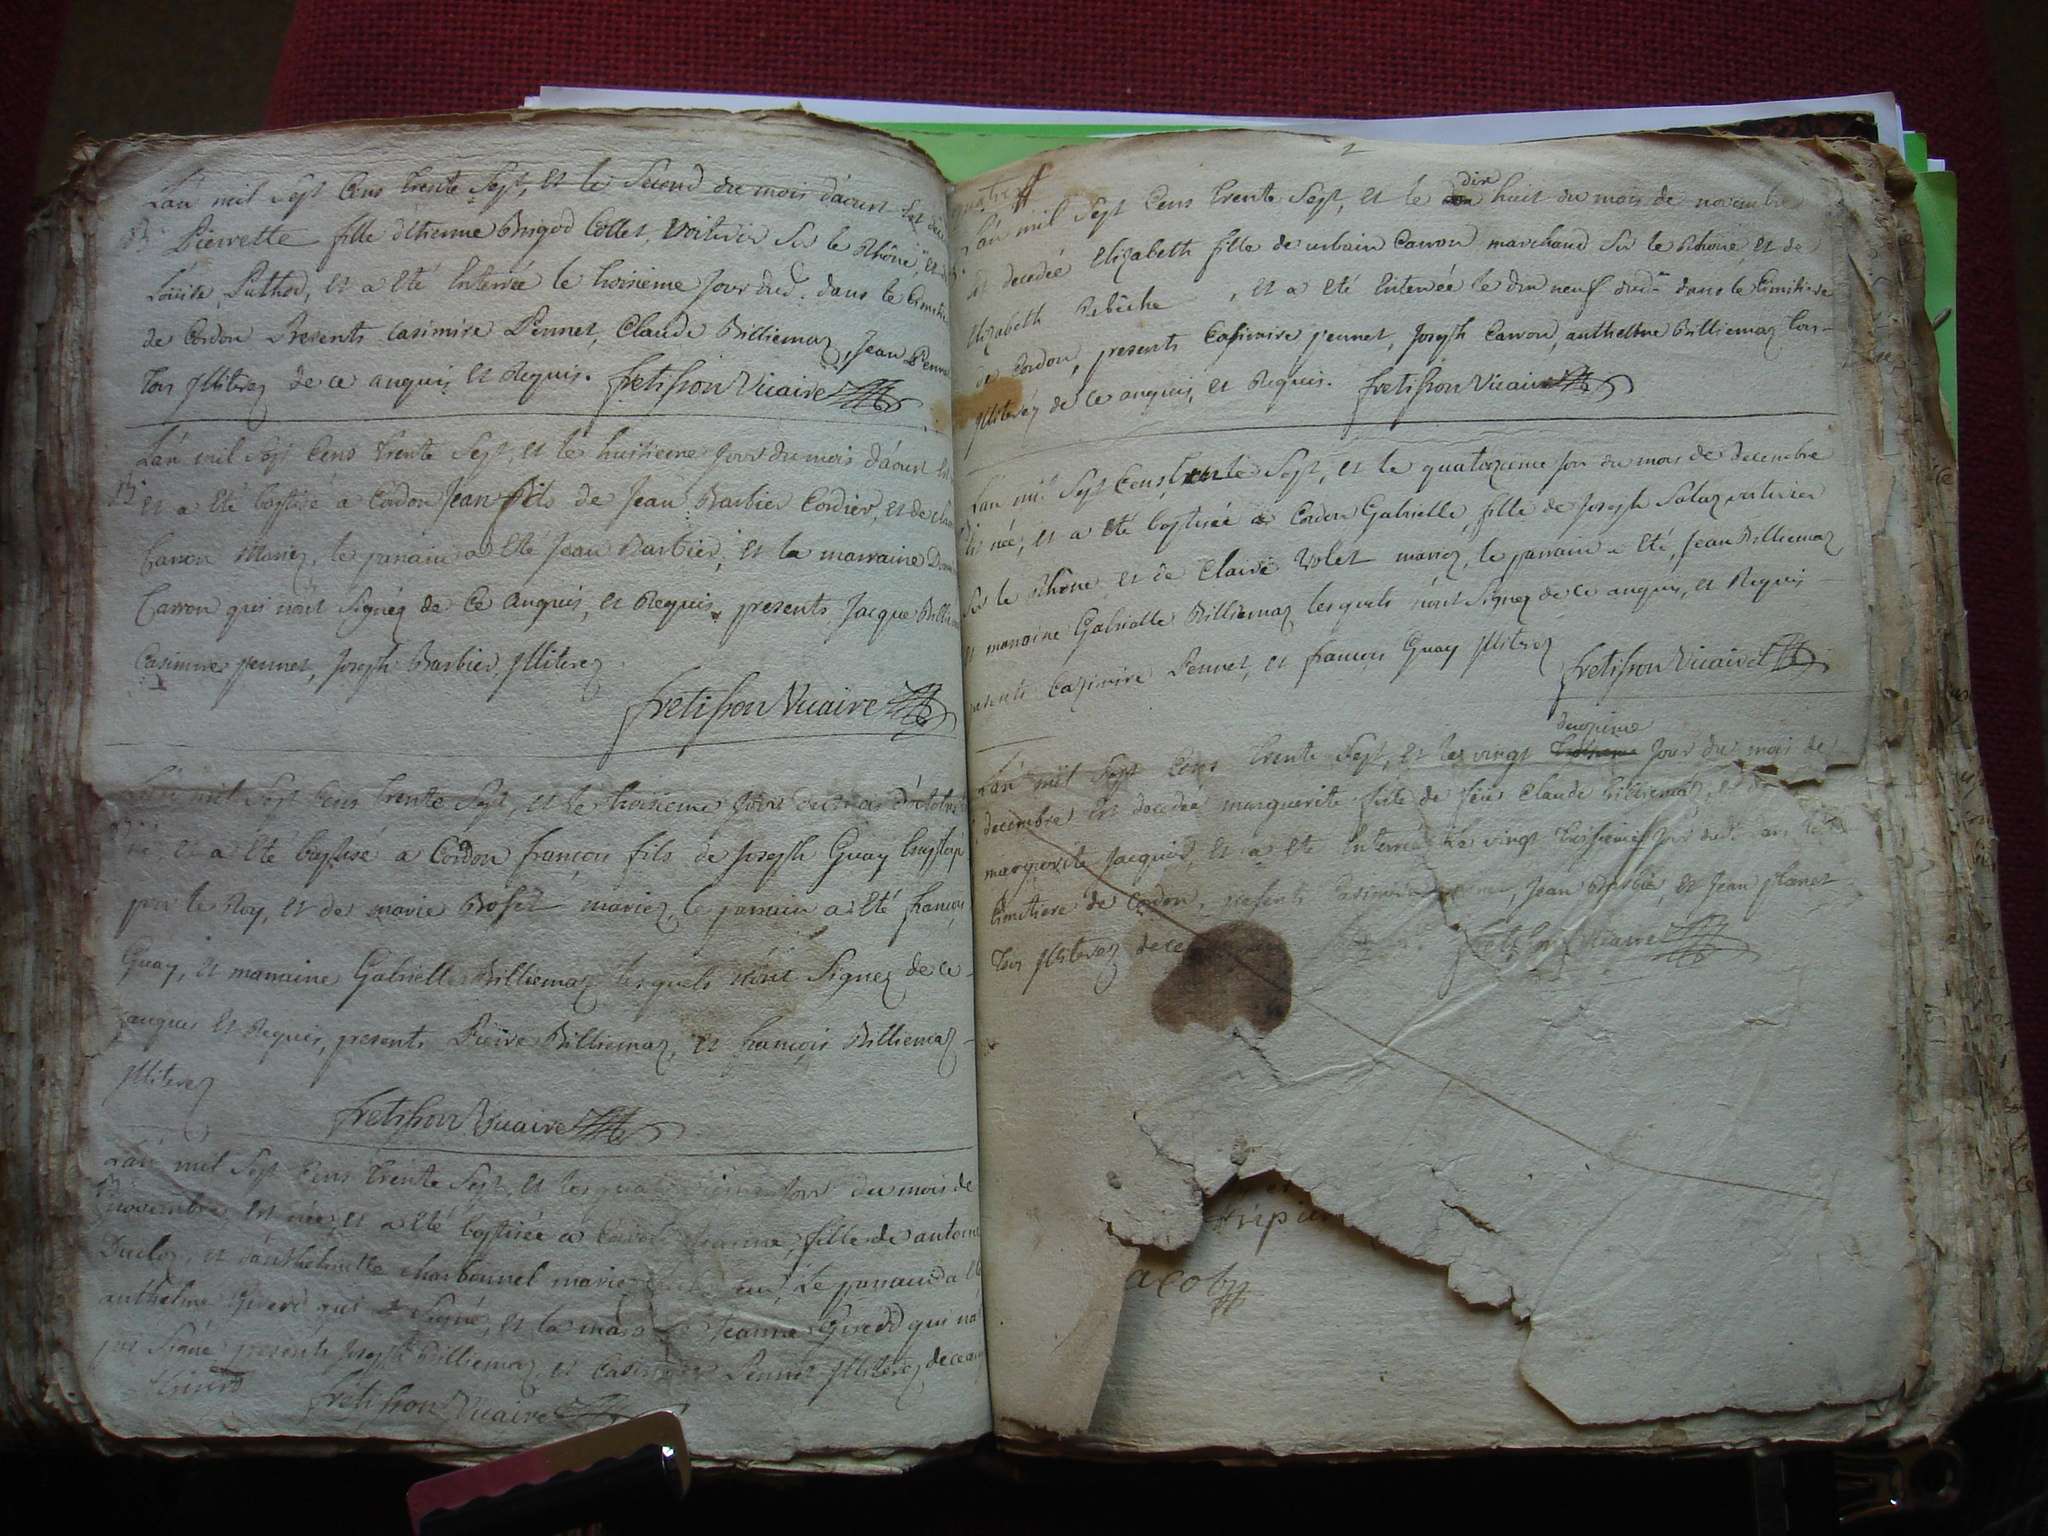 L'an mil Sept Cens trente Sept, et le Second du mois d'aoust est
Pierrette fille d'Etienne Brigod Collet, voiturier sur le Rhône, et de
Louise Puthod, et a eté Enterrée le troisieme Jour dud. dans le Cimetiere
de Cordon Presents Casimire Pennet, Claude Billiemaz, Jean Pennet
tous Illiterez de ce anquis et Requis. fretisson Vicaire
L'an mil Sept Cens trente Sept, et le huitieme Jour du mois d'aoust est
et a eté baptisé a Cordon Jean fils de Jean Barbier Cordier, et de
Carron Mariez, le parrain a eté Jean Barbier, et la marraine
Carron qui n'ont Signéz de Ce anquis, et Requis, presents Jacque
Casimire pennet, Joseph Barbier, Illiterez
fretisson Vicaire
L'an mil Sept Cens trente Sept, et le troisieme Jour du mois d'octobre
né et a été baptisé a Cordon françois fils de Joseph Guay
pour le Roy, et de marie Bosset mariez, le parrain a eté françois
Guay, et marraine Gabrielle Billiemaz lesquels n'ont Signez de ce
anquis et Requis, presents Pierre Billiemaz, et françois Billiemaz
Illiterez
fretisson Vicaire
L'an mil Sept Cens trente Sept, et Jour du mois de
novembre est née, et a eté baptisée a Cordon Jeanne, fille de antoine
Duclos, et d'anthelmette charbonnel mariez Le parrain a eté
anthelme Girerd qui a Signé, et la marraine Jeanne Girerd qui n'a
pas Signé presents Joseph Billiemaz, et Casimire Pennet Illiterez de ce
Girerd fretisson Vicaire
2
L'an mil Sept Cens trente Sept, et le dix huit du mois de novembre
est decedée Elizabeth fille de urbain Carron marchand sur le Rhône, et de
Elizabeth Rebêche, et a eté Enterrée le dix neuf dud. dans le Cimitiere
de Cordon, presents Casimire pennet, Joseph Carron, anthelme Billiemaz tous
Illiteréz de ce anquis, et Requis. fretisson Vicaire
L'an mil Sept Cens trente Sept, et le quatorzieme Jour du mois de Decembre
est née, et a eté baptisée a Cordon Gabrielle, fille de Joseph voiturier
sur le Rhône, et de Claire Volet mariez, le parrain a eté, Jean Billiemaz
et marraine Gabrielle Billiemaz lesquels n'ont Signez de ce anquis, et Requis
presents Casimire Pennet, et francois Guay Illiterez
fretisson Vicaire
L'an mil Sept Cens trente Sept, et le vingt deuxieme Jour du mois de
decembre est decedée marguerite fille de feu Claude Billiemaz, et de
marguerite Jacquier, et a eté Enterrée le vingt troisieme Jour dud.
Cimetiere de Cordon, presents Casimire Jean Barbier, et Jean
tous Illiterez de ce fretisson Vicaire
acob